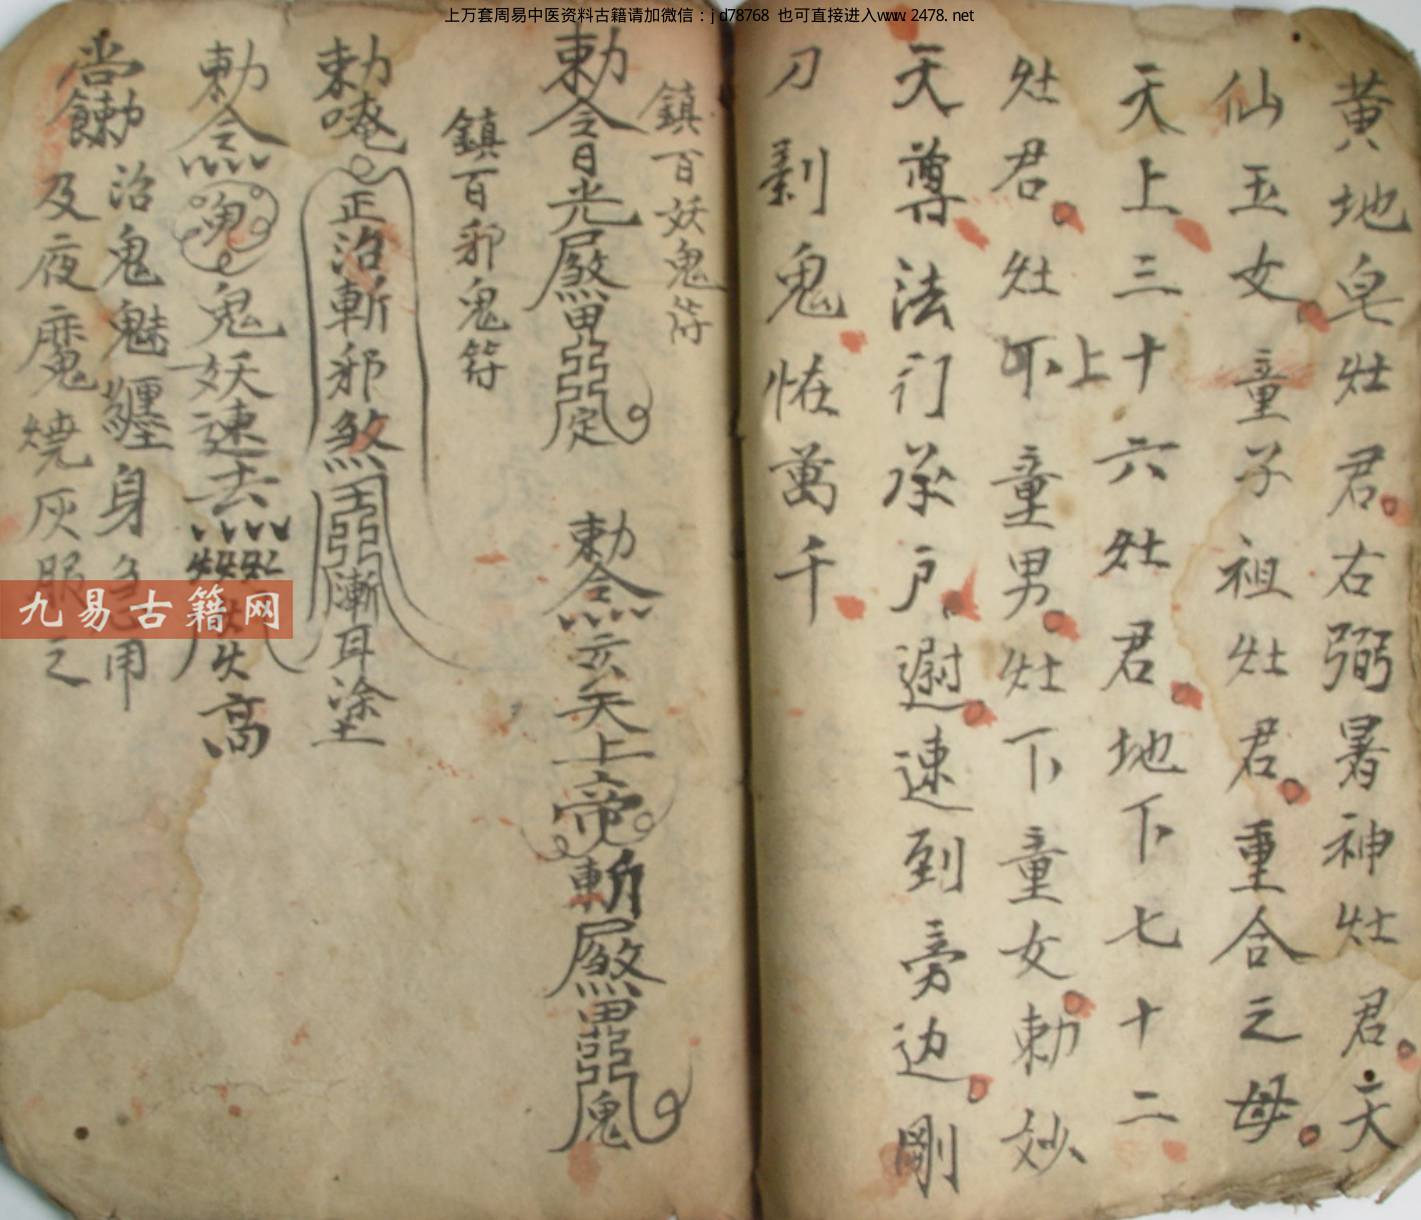 上万套周易中医资料古籍请加微信：jd78768 也可直接进入www.2478.net
黄地皂灶君右弼署神灶君天
仙玉女童子祖灶君重合之母
天上三十六灶君地下七十二
灶君灶上童男灶下童女勅妙
天尊法门承户避速到旁边剛
刀剿鬼怪萬千
鎮百妖鬼符
勅令日光
定
勅令玄天上帝斬
鬼
鎮百邪鬼符
勅唵正治斬邪煞
耳塗
勅令鬼妖速去
高
治鬼魅纏身
用
及夜魔燒灰服之
九易古籍网